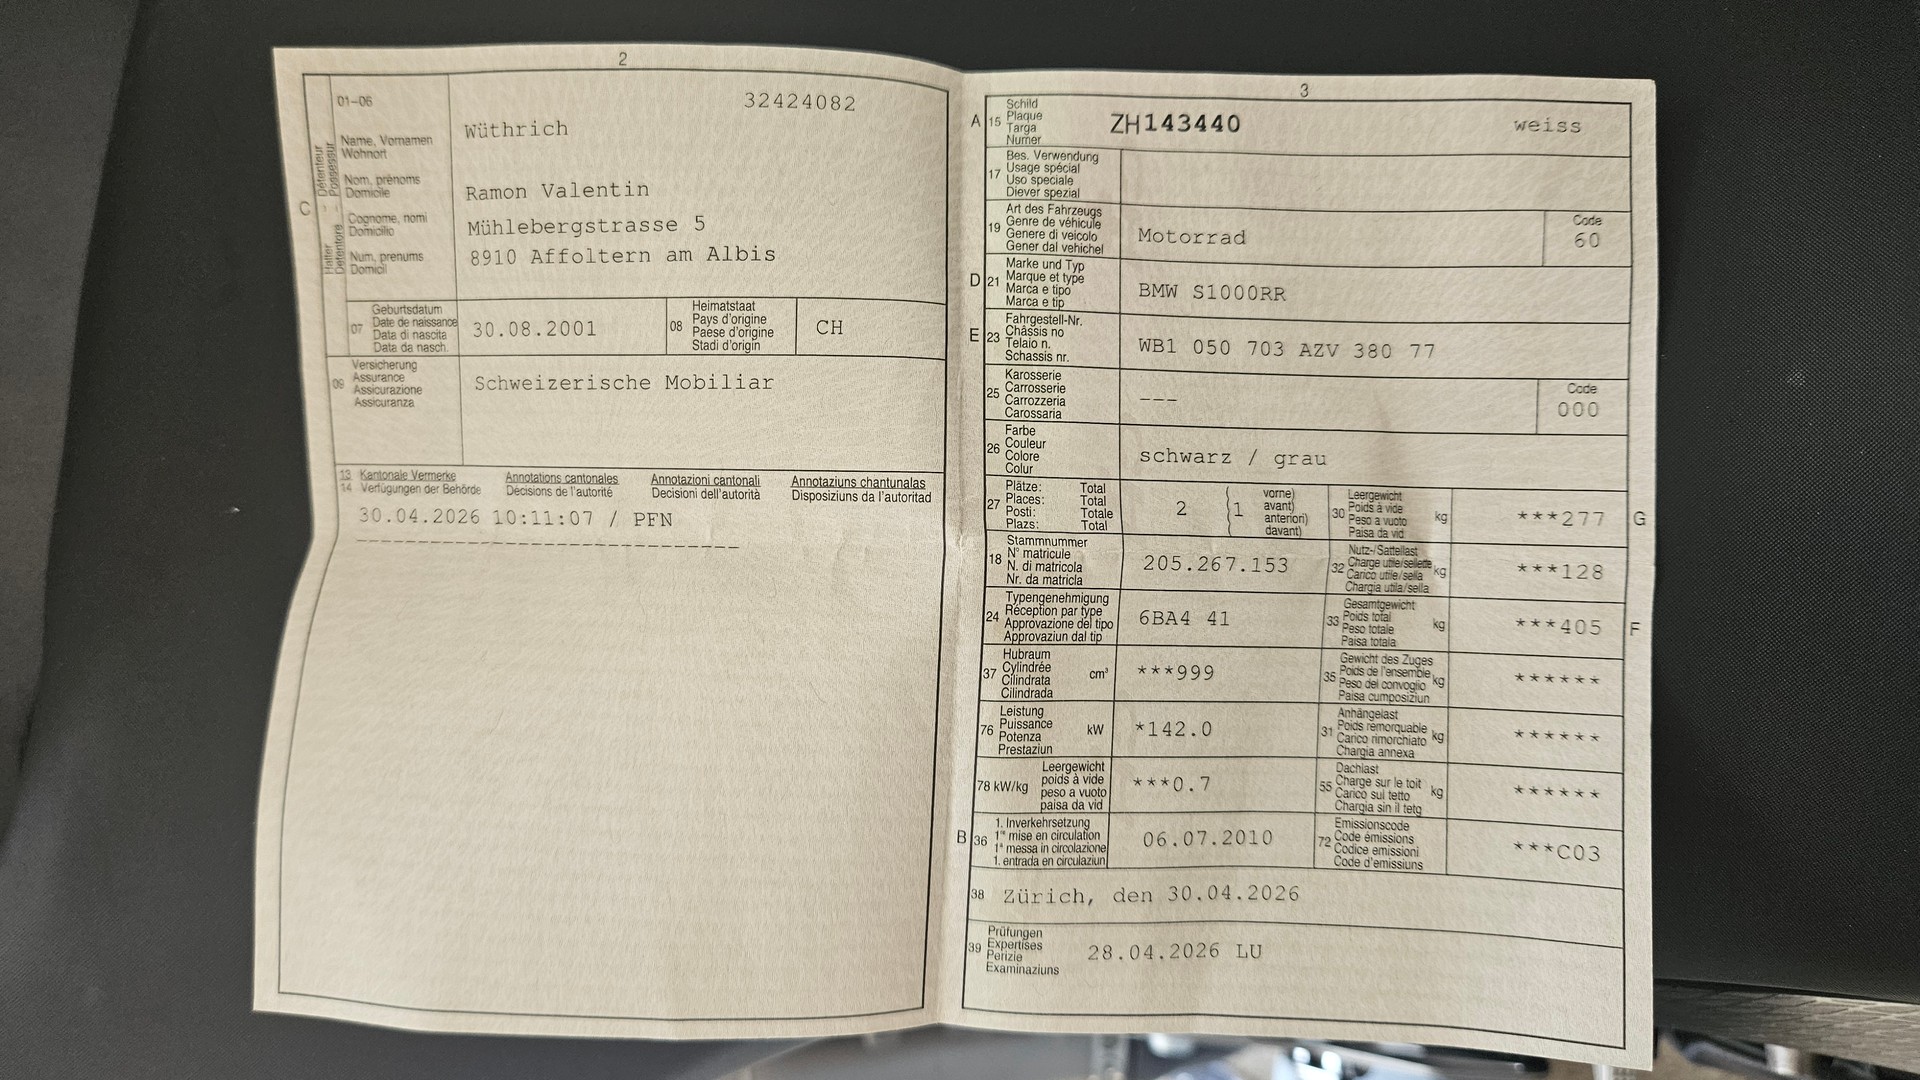 2
01-06
32424082
C
Halter Détenteur
Detentore Possessur
Name, Vornamen
Wohnort
Nom, prénoms
Domicile
Cognome, nomi
Domicilio
Num, prenums
Domicil
Wüthrich
Ramon Valentin
Mühlebergstrasse 5
8910 Affoltern am Albis
07
Geburtsdatum
Date de naissance
Data di nascita
Data da nasch.
30.08.2001
08
Heimatstaat
Pays d'origine
Paese d'origine
Stadi d'origin
CH
09
Versicherung
Assurance
Assicurazione
Assicuranza
Schweizerische Mobiliar
13 Kantonale Vermerke Annotations cantonales Annotazioni cantonali Annotaziuns chantunalas
14 Verfügungen der Behörde Décisions de l'autorité Decisioni dell'autorità Disposiziuns da l'autoritad
30.04.2026 10:11:07 / PFN
------------------------------
3
A 15
Schild
Plaque
Targa
Numer
ZH143440 weiss
17
Bes. Verwendung
Usage spécial
Uso speciale
Diever spezial
19
Art des Fahrzeugs
Genre de véhicule
Genere di veicolo
Gener dal vehichel
Motorrad
Code
60
D 21
Marke und Typ
Marque et type
Marca e tipo
Marca e tip
BMW S1000RR
E 23
Fahrgestell-Nr.
Châssis no
Telaio n.
Schassis nr.
WB1 050 703 AZV 380 77
25
Karosserie
Carrosserie
Carrozzeria
Carossaria
---
Code
000
26
Farbe
Couleur
Colore
Colur
schwarz / grau
27
Plätze: Total
Places: Total
Posti: Totale
Plazs: Total
2 ( 1
vorne)
avant)
anteriori)
davant)
30
Leergewicht
Poids à vide
Peso a vuoto
Paisa da vid
kg
***277
G
18
Stammnummer
N° matricule
N. di matricola
Nr. da matricla
205.267.153
32
Nutz-/Sattellast
Charge utile/sellette
Carico utile/sella
Chargia utila/sella
kg
***128
24
Typengenehmigung
Réception par type
Approvazione del tipo
Approvaziun dal tip
6BA4 41
33
Gesamtgewicht
Poids total
Peso totale
Paisa totala
kg
***405
F
37
Hubraum
Cylindrée
Cilindrata
Cilindrada
cm³
***999
35
Gewicht des Zuges
Poids de l'ensemble
Peso del convoglio
Paisa cumposiziun
kg
******
76
Leistung
Puissance
Potenza
Prestaziun
kW
*142.0
31
Anhängelast
Poids remorquable
Carico rimorchiato
Chargia annexa
kg
******
78 kW/kg
Leergewicht
poids à vide
peso a vuoto
paisa da vid
***0.7
55
Dachlast
Charge sur le toit
Carico sul tetto
Chargia sin il tetg
kg
******
B 36
1. Inverkehrsetzung
1re mise en circulation
1a messa in circolazione
1. entrada en circulaziun
06.07.2010
72
Emissionscode
Code émissions
Codice emissioni
Code d'emissiuns
***C03
38
Zürich, den 30.04.2026
39
Prüfungen
Expertises
Perizie
Examinaziuns
28.04.2026 LU